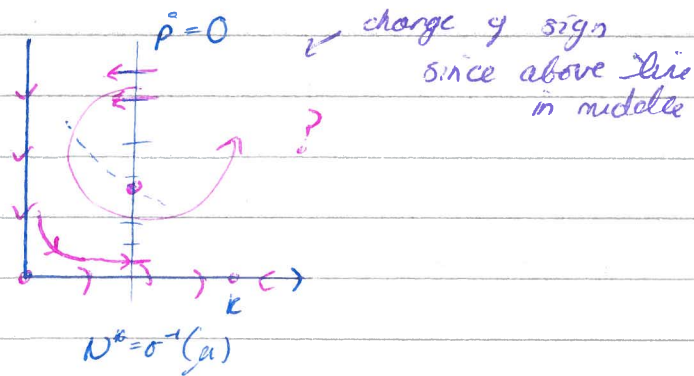 ṗ = 0
change of sign
since above line
in middle
?
K
N* = σ⁻¹(μ)